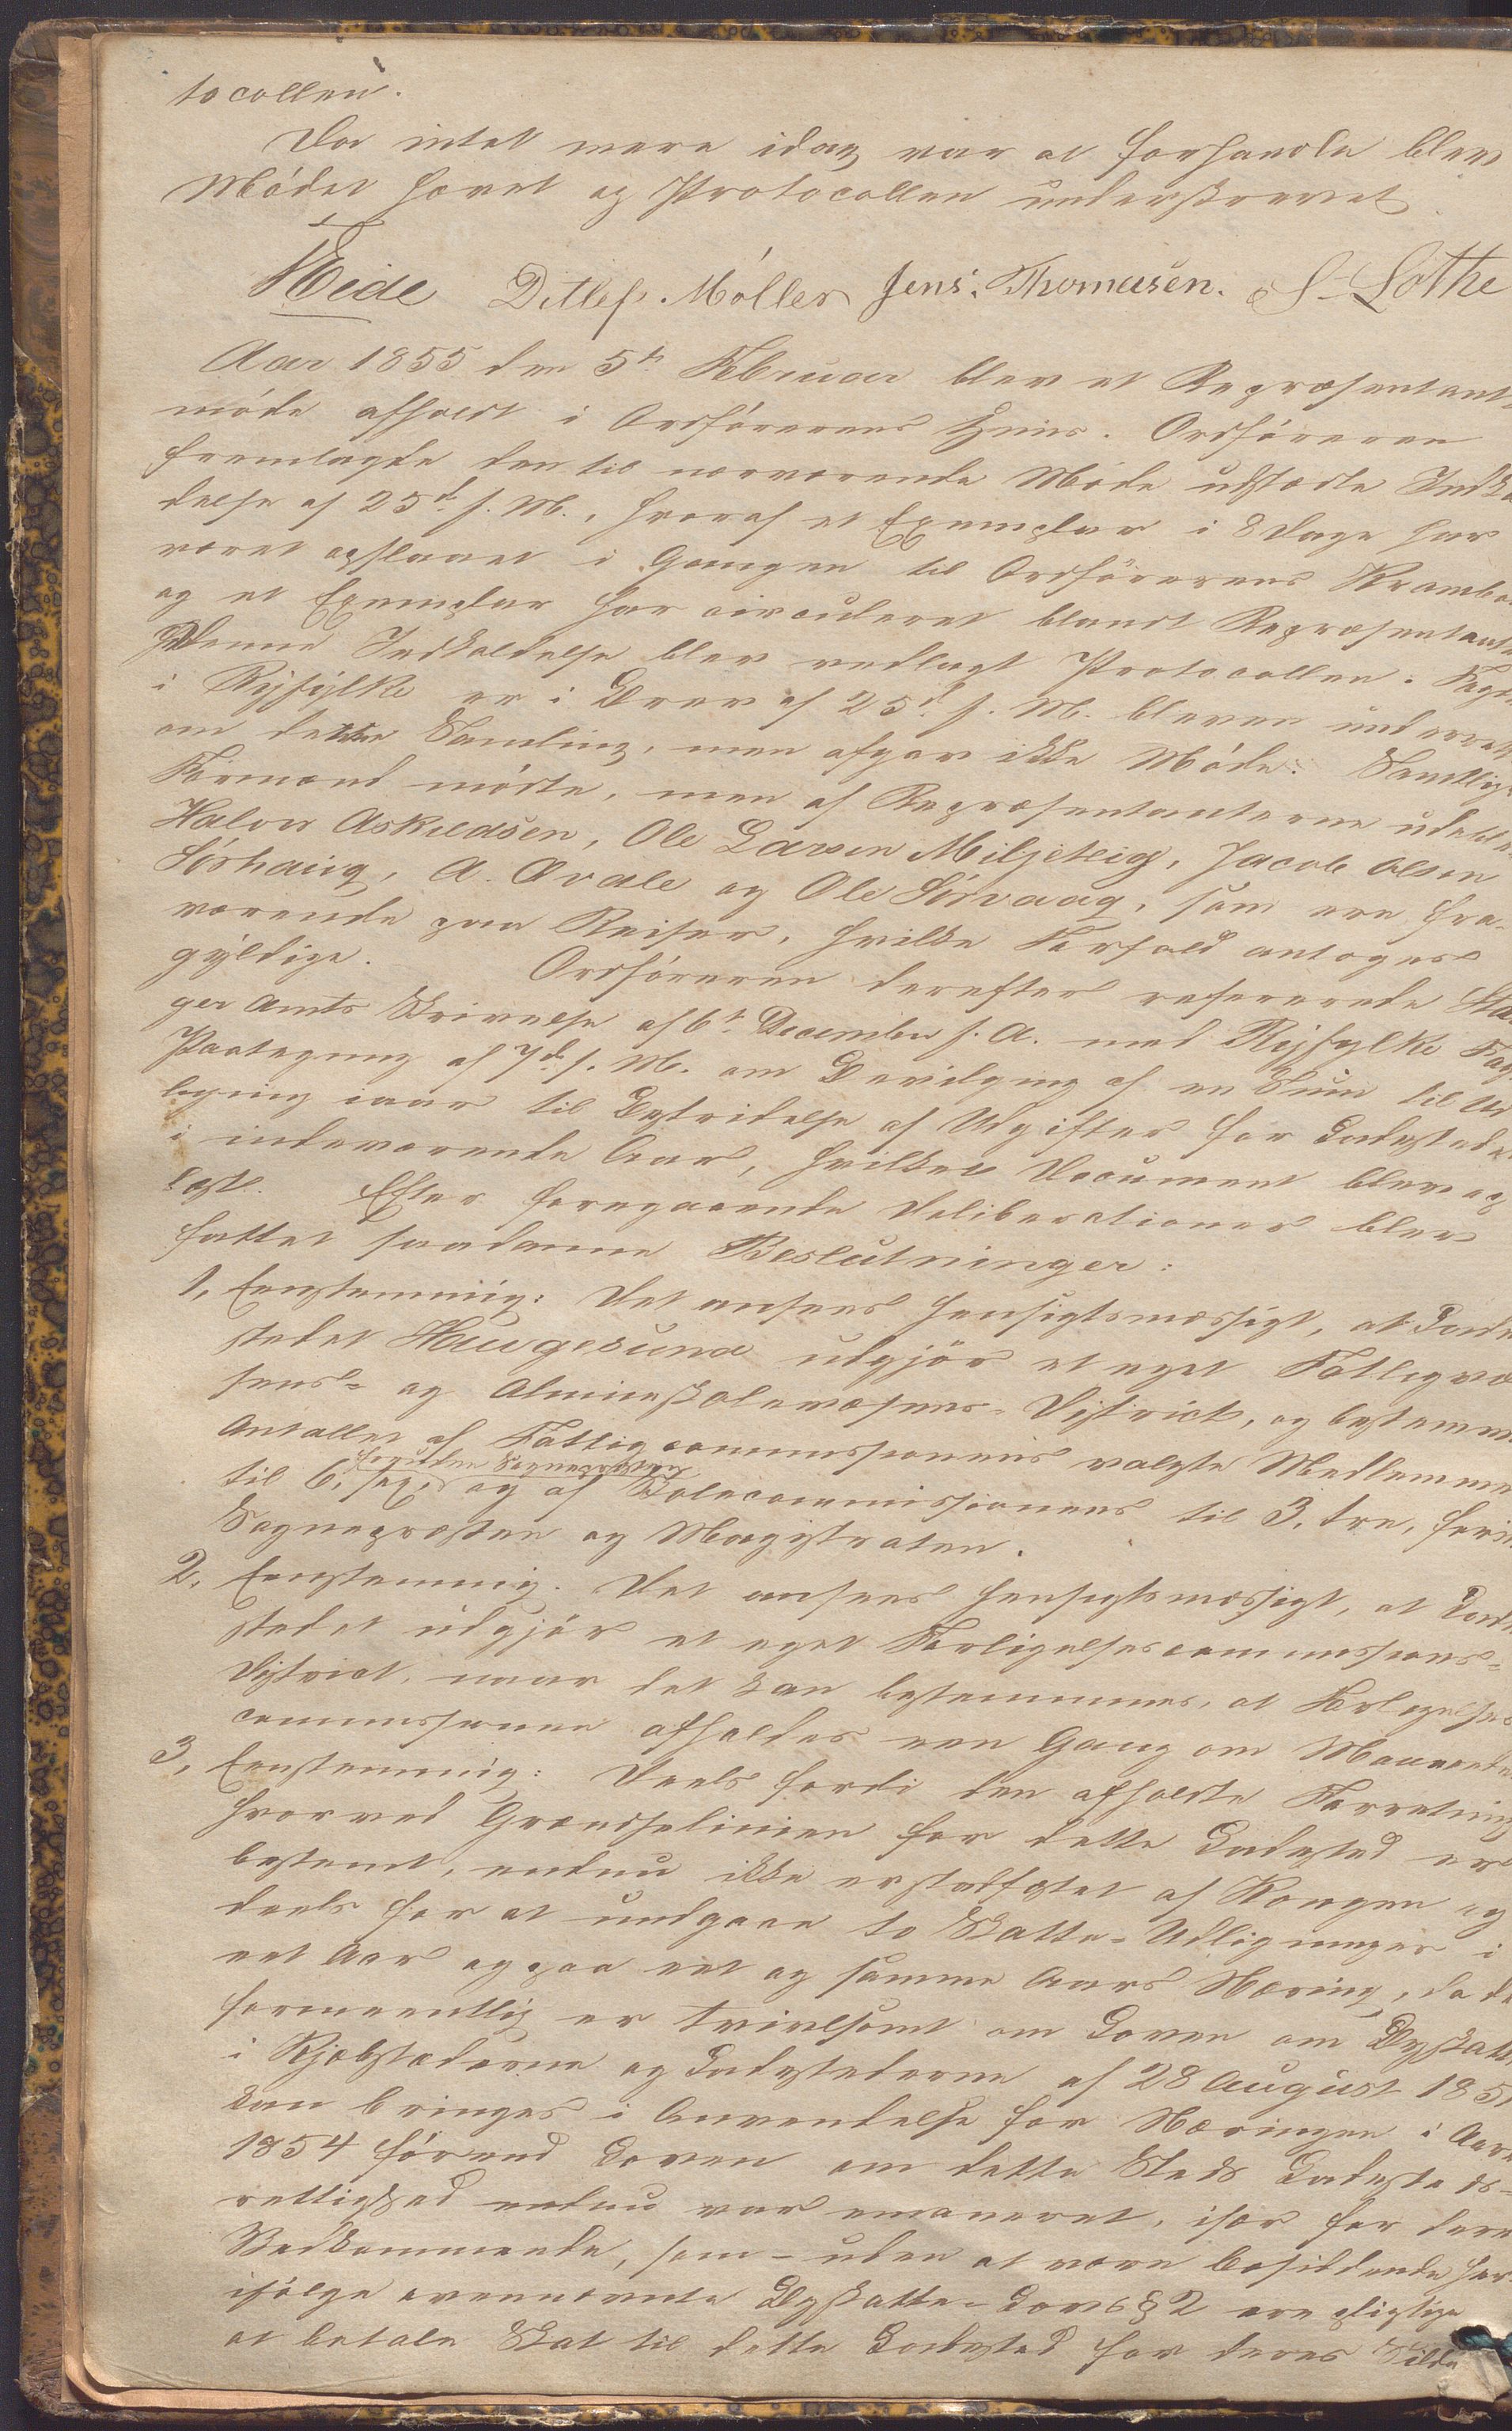 tocollen.
Da intet mere idag var at forhandle blev
Mödet hævet og Protocollen underskrevet.
Eide Ditlef Möller Jens Thomasen. S Lothe
Aar 1855 den 5te Februar blev et Repræsentant
möde afholdt i Ordförerens Huus. Ordföreren
fremlagde den til nærværende Möde udstædte Indkal
delse af 25d. f. M., hvoraf et Exemplar i 8 Dage har
været opslaaet i Gangen til Ordförerens Krambo
og et Exemplar har circuleret blandt Repræsentant
Denne Indkaldelse blev vedlagt Protocollen. Foged
i Ryfylke er i Brev af 25d. f. M. bleven underret
om dette Samling, men afgav ikke Möde. Samtlige
Formænd mödte, men af Repræsentanterne udeblev
Halvor Askildsen, Ole Larsen Miljeteig, Jacob Olsen
Sörhaug, A. Qvale og Ole Sörvaag, som ere fra-
værende paa Reiser, hvilke Forfald antoges
gyldige. Ordföreren derefter refererede Sta
ger Amts Skrivelse af 6te December f. A. med Ryfylke Fog
Paategning af 7d. f. M. om Bevilgning af en Sum til Ud
ligning iaar til Bestridelse af Udgifter for Ladestedet
i indeværende Aar, hvilket Document blev op
læst. Efter foregaaende Deliberationer blev
fattet saadanne Beslutninger:
1, Eenstemmig: Det ansees hensigtsmæssigt, at Lade
stedet Haugesund udgjör et eget Fattigvæ
sens- og Almueskolevæsens-District, og bestemm
Antallet af Fattigcommissionens valgte Medlemme
foruden Sognepræsten
til 6, sex, og af Skolecommissionens til 3, tre, foru
Sognepræsten og Magistraten.
2, Eenstemmig. Det ansees hensigtsmæssigt, at Lade
stedet udgjör et eget Forligelsescommissions-
District, naar det kan bestemmes, at Forligelses
commissionen afholdes een Gang om Maaneden
3, Eenstemmig: Deels fordi den afholdte Forretning
hvorved Grændselinien for dette Ladested er
bestemt, endnu ikke er stadfæstet af Kongen og
deels for at undgaae to Skatte-Udligninger i
eet Aar og paa eet og samme Aars Næring, da de
formeentlig er tvivlsomt om Loven om Byskatte
i Kjöbstæderne og Ladestederne af 28 August 185
kan bringes i Anvendelse for Næringen i Aare
1854 förend Loven om dette Steds Ladesteds-
rettighed endnu var emaneret, især for dere
Vedkommende, som - uden at være bosiddende her
ifölge ovennævnte Byskatte-Lovs § 2 ere pligtige
at betale Skat til dette Ladested for deres Silde